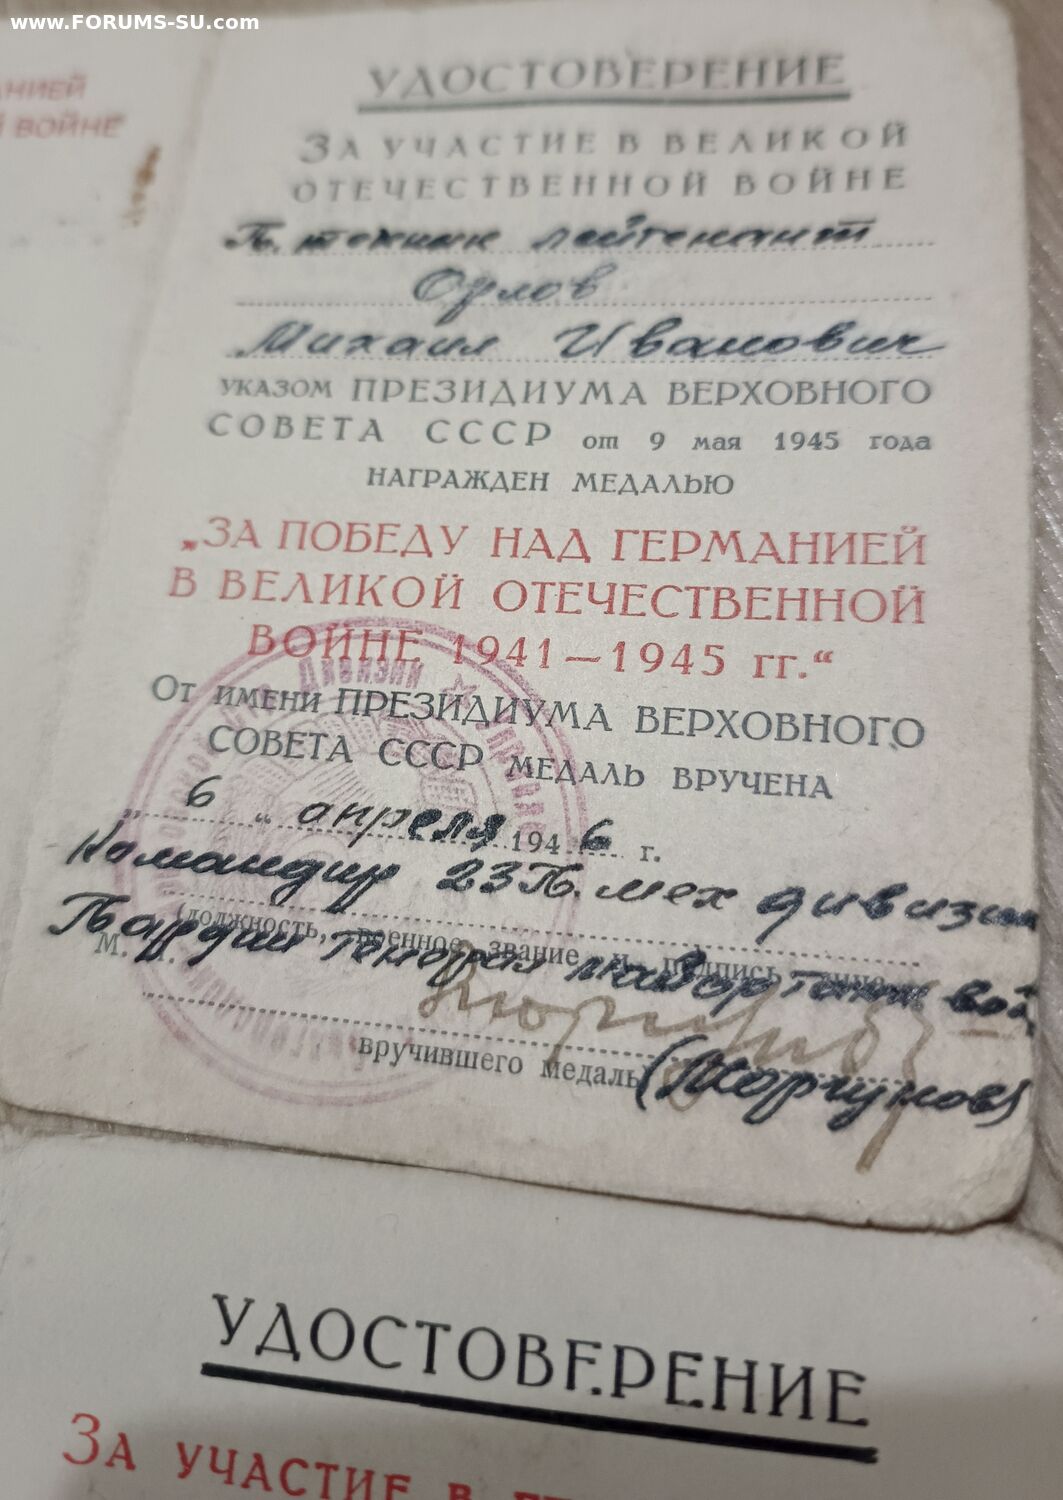 www.FORUMS-SU.com
НИЕЙ
ВОЙНЕ
УДОСТОВЕРЕНИЕ
ЗА УЧАСТИЕ В ВЕЛИКОЙ
ОТЕЧЕСТВЕННОЙ ВОЙНЕ
Гв. техник лейтенант
Орлов
Михаил Иванович
УКАЗОМ ПРЕЗИДИУМА ВЕРХОВНОГО
СОВЕТА СССР от 9 мая 1945 года
НАГРАЖДЕН МЕДАЛЬЮ
„ЗА ПОБЕДУ НАД ГЕРМАНИЕЙ
В ВЕЛИКОЙ ОТЕЧЕСТВЕННОЙ
ВОЙНЕ 1941—1945 гг.“
От имени ПРЕЗИДИУМА ВЕРХОВНОГО
СОВЕТА СССР МЕДАЛЬ ВРУЧЕНА
„ 6 “ апреля 1946 г.
Командир 23 Гв. мех дивизии
(должность, военное звание и подпись
Гвардии Генерал майор танк вой
М.
вручившего медаль)
(Корчунов)
УДОСТОВЕРЕНИЕ
ЗА УЧАСТИЕ В